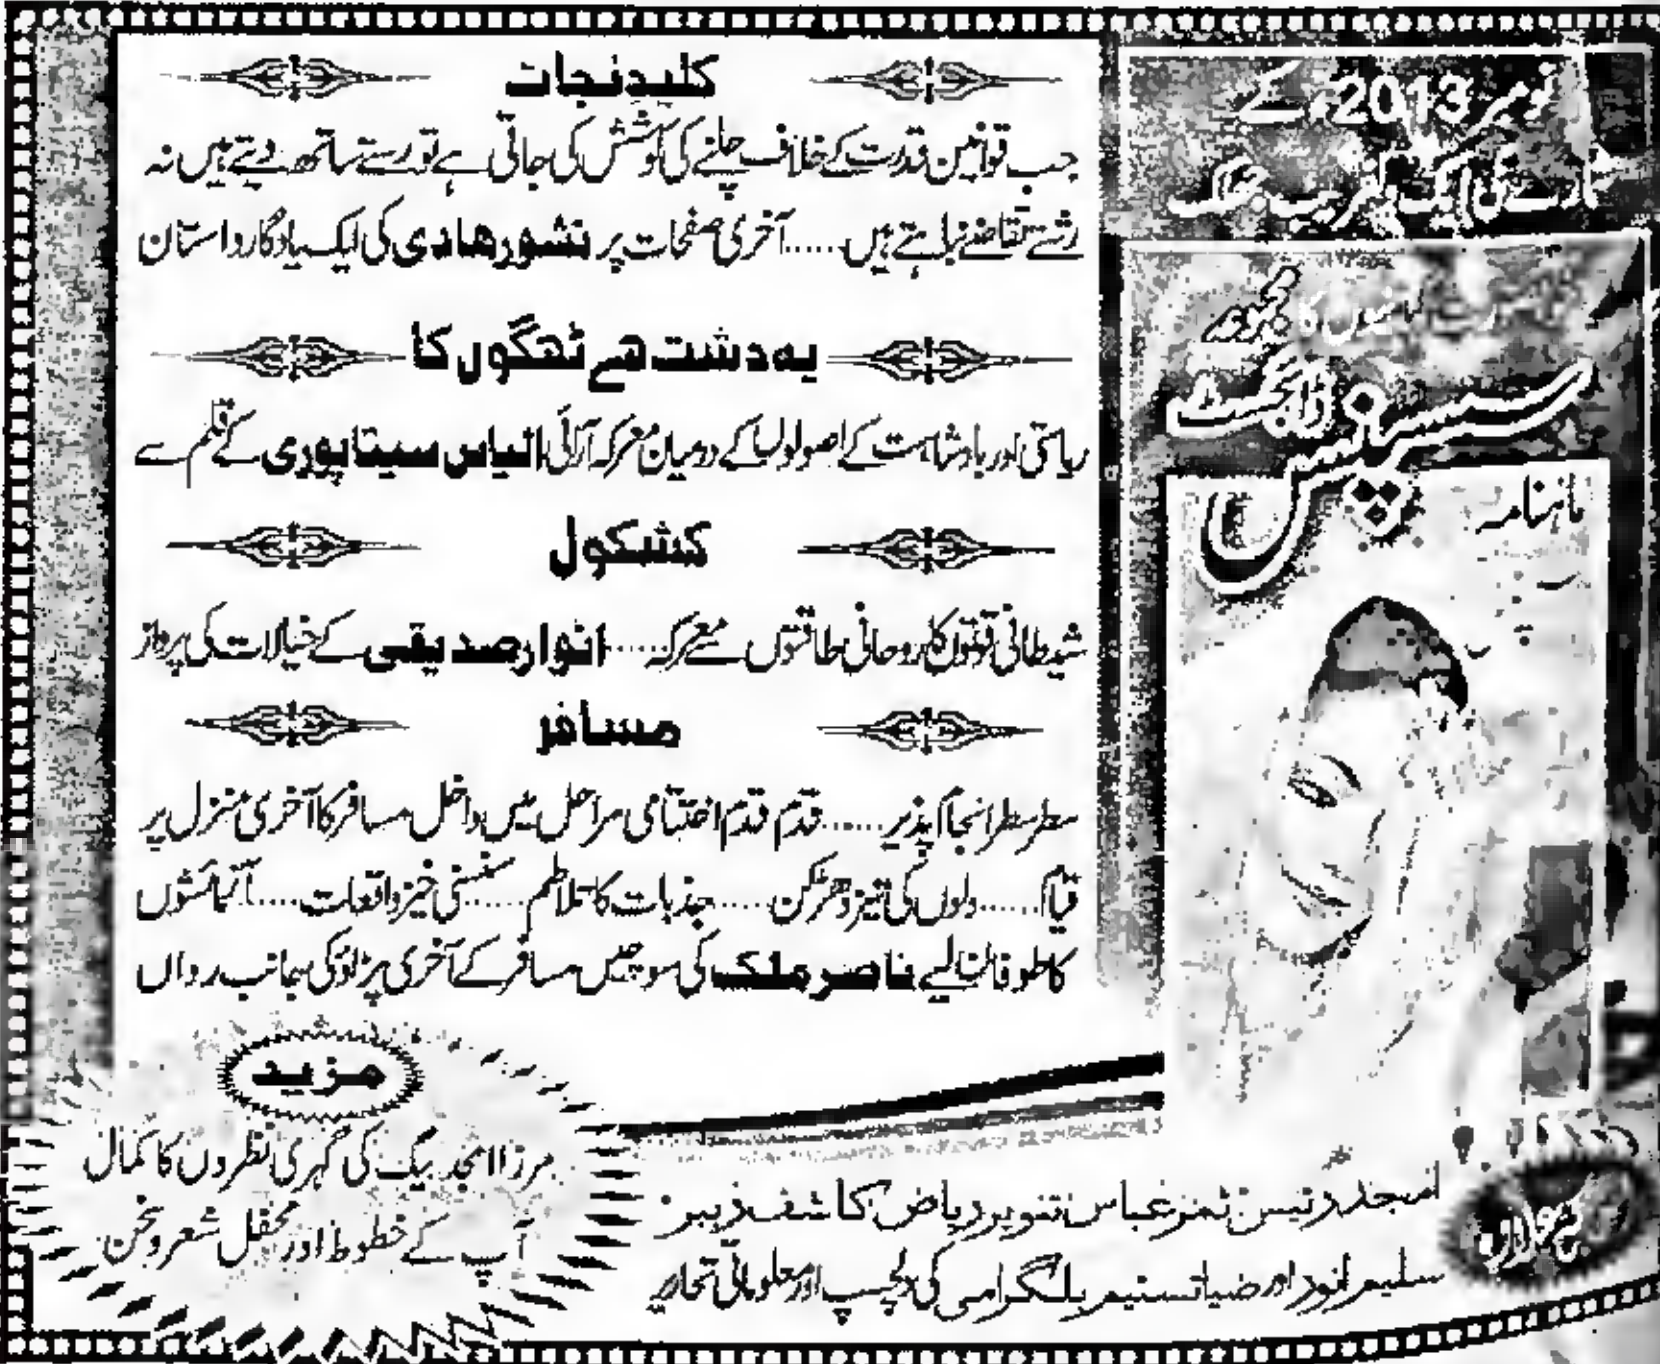 نومبر 2013ء کے
شمارے کی ایک دلفریب جھلک
خوبصورت کہانیوں کا مجموعہ
سسپنس ڈائجسٹ
ماہنامہ
کلیدِ نجات
جب قوانین قدرت کے خلاف چلنے کی کوشش کی جاتی ہے تو رستے ساتھ دیتے ہیں نہ
رشتے تقاضے نباہتے ہیں...... آخری صفحات پر نشور ہادی کی ایک یادگار داستان
یہ دشت ہے ٹھگوں کا
ریاستی اور بادشاہت کے اصولوں کے درمیان معرکہ آرائی، الیاس سیتاپوری کے قلم سے
کشکول
شیطانی قوتوں کا روحانی طاقتوں سے معرکہ..... انوار صدیقی کے خیالات کی پرواز
مسافر
سطر سطر انجام پذیر...... قدم قدم اختتامی مراحل میں داخل مسافر کا آخری منزل پر
قیام...... دلوں کی تیز دھڑکن..... جذبات کا تلاطم...... سنسنی خیز واقعات..... آزمائشوں
کا طوفان لیے ناصر ملک کی سوچیں مسافر کے آخری پڑاؤ کی جانب رواں
مزید
مرزا امجد بیگ کی گہری نظروں کا کمال
آپ کے خطوط اور محفل شعر و سخن
امجد رئیس، ثمر عباس، تنویر ریاض، کاشف زبیر
سلیم انور اور ضیا تسنیم بلگرامی کی دلچسپ اور معلوماتی تحاریر